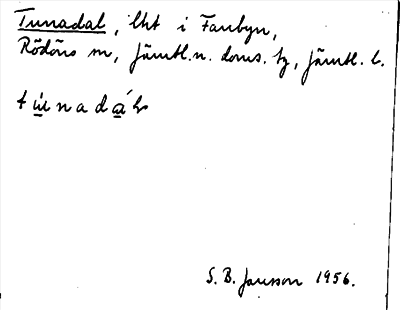 Tunadal, lht i Fanbyn,
Rödöns sn, Jämtl. n. doms. tg, Jämtl. l.
S. B. Jansson 1956.